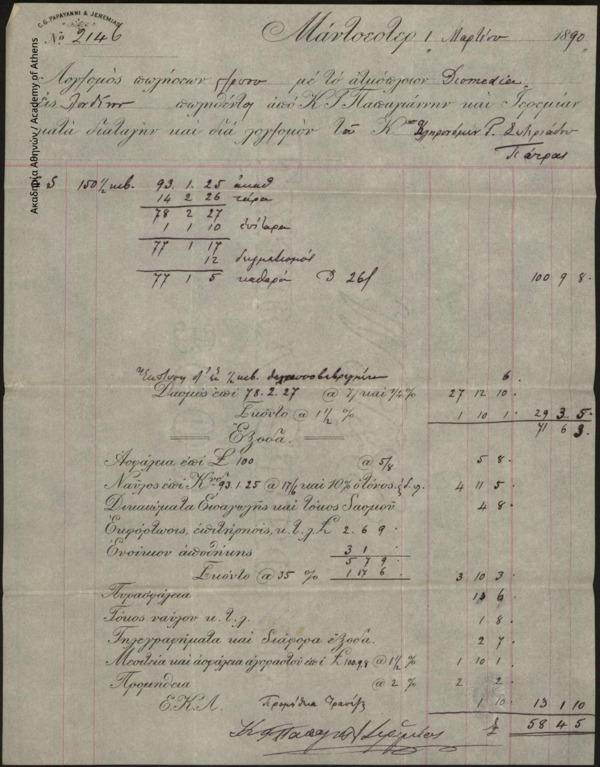 C.G. PAPAYANNI & JEREMIAS
Nº 2146 Μάντσεστερ 1 Μαρτίου 1890
Λογ/σμὸς πωλήσεων μὲ τὸ ἀτμόπλοιον Diomedia
εἰς Λονδῖνον πωληθέντος ἀπὸ Κ Γ Παπαγιάννην καὶ Ἱερεμίαν
κατὰ διαταγὴν καὶ διὰ λογ/σμὸν τῶν Κ Κληρονόμων
Πάτρας
150 1/2 κιβ. 93. 1. 25 ἀκαθ
14 2 26 τάρα
78 2 27
1 1 10 ἐπίταρα
77 1 17
12 δειγματισμός
77 1 5 καθαρά 26/ 100 9 8
6.
Δασμὸς ἐπὶ 78.2.27 @ 7/ καὶ 27 12 10
Σκόντο @ 1 1/2 % 1 10 1 29 3 5
71 6 3
Ἔξοδα.
Ἀσφάλεια ἐπὶ £ 100 @ 5/8 5 8
Ναῦλος ἐπὶ 93.1.25 @ 17/6 καὶ 10% ὁ τόνος 4 11 5
Δικαιώματα Εἰσαγωγῆς καὶ τόκος δασμοῦ 4 8
Ἐκφόρτωσις, ἐπιτήρησις, κ.τ.λ. £ 2. 6 9
Ἐνοίκιον ἀποθήκης 3 1
5 7 9
Σκόντο @ 35 % 1 17 6 3 10 3
Πυρασφάλεια 1 6
Τόκος ναύλου κ.τ.λ. 1 8
Τηλεγραφήματα καὶ διάφορα ἔξοδα. 2 7
Μεσιτεία καὶ ἀσφάλεια ἀγοραστοῦ ἐπὶ £ 100.9.8 @ 1 1/2 % 1 10 1
Προμήθεια @ 2 % 2 2
Ε.Κ.Λ. Προμήθεια Τραπέζ 1 10 13 1 10
£ 58 4 5
Ακαδημία Αθηνών / Academy of Athens